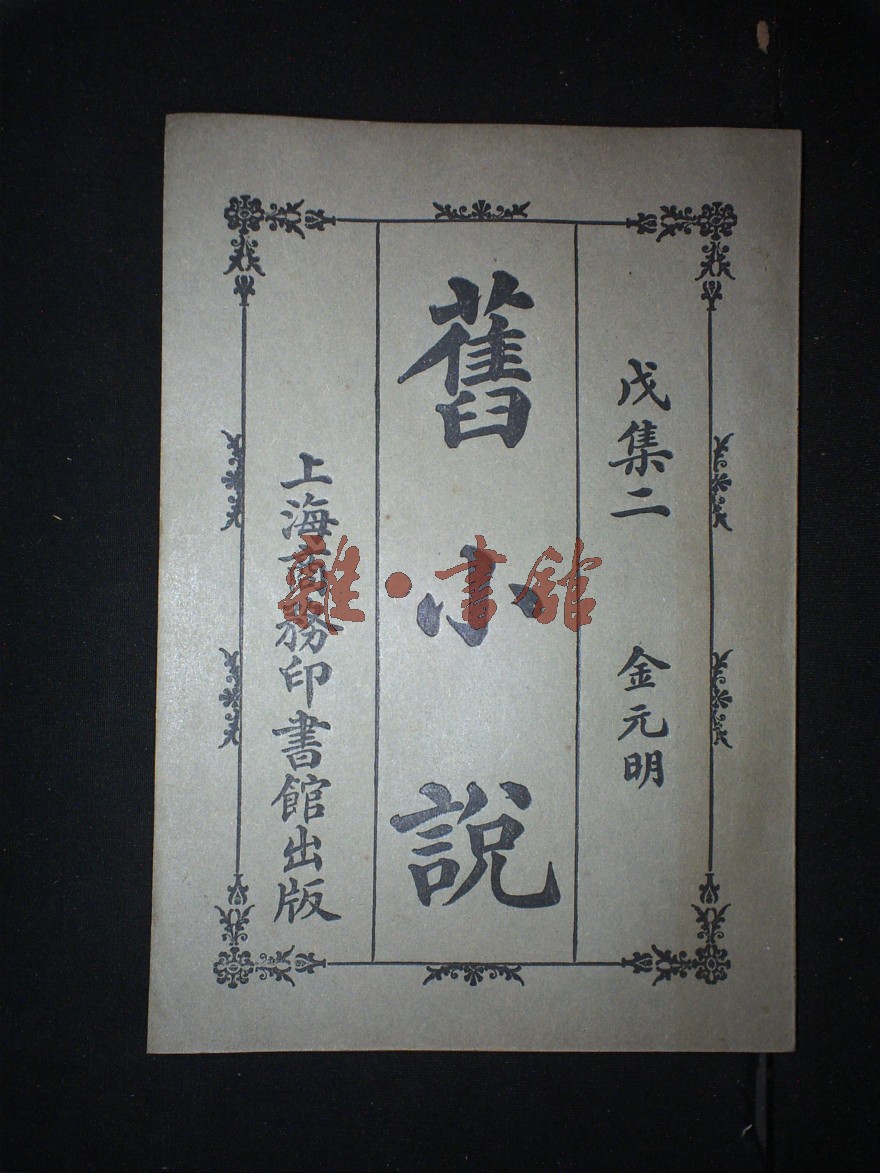 戊集二 金元明
舊小說
上海商務印書館出版
雜·書館